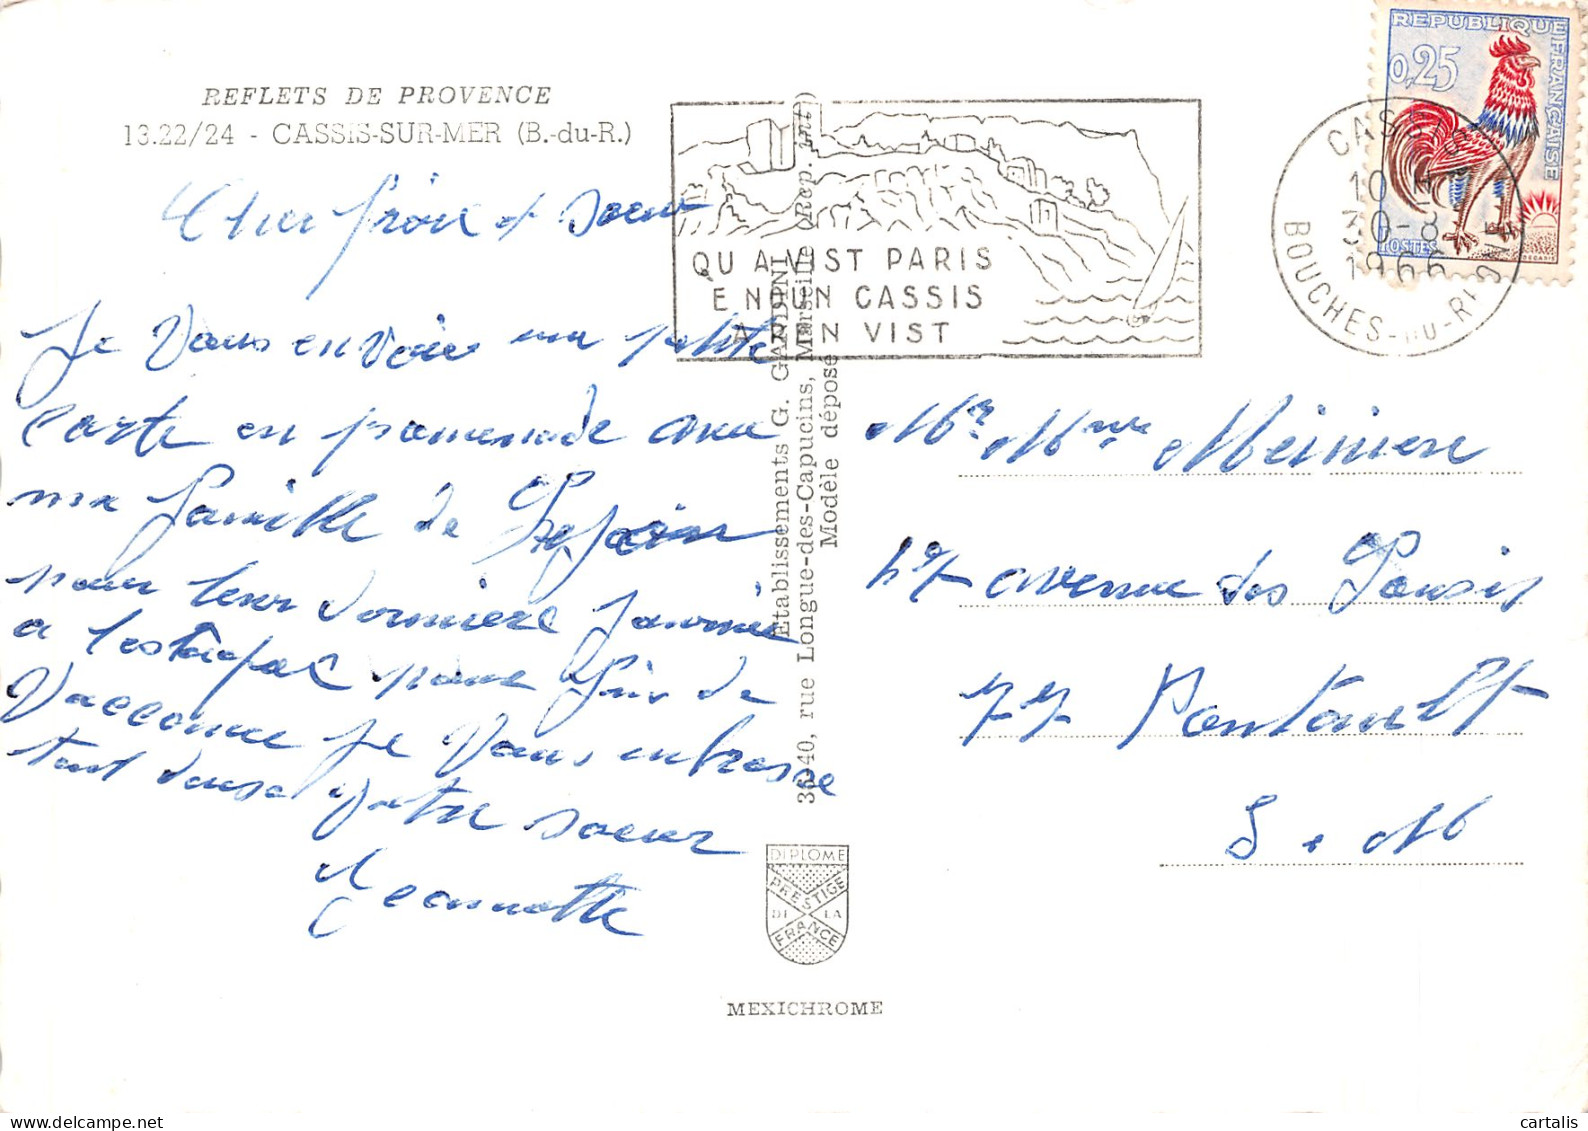 REFLETS DE PROVENCE
13.22/24 - CASSIS-SUR-MER (B.-du-R.)
Cher frère et soeur
Je vous envoie ma petite
carte en promenade avec
ma famille de
pour leur dernière journée
a l'estaque pour fin de
Vaccance je vous enbrasse
tout deux votre soeur
Jeannette
Etablissements G. GANDINI
36-40, rue Longue-des-Capucins, Marseille (Rep. int.)
Modèle déposé
DIPLOME
PRESTIGE
DE LA
FRANCE
MEXICHROME
QU A VIST PARIS
E NOUN CASSIS
A REN VIST
CASSIS
10 H
30-8
1966
BOUCHES-DU-RHONE
REPUBLIQUE FRANÇAISE
0,25
POSTES
DECARIS
Mr Mme Méiniere
47 avenue des
77 Pontault
S. M
cartalis